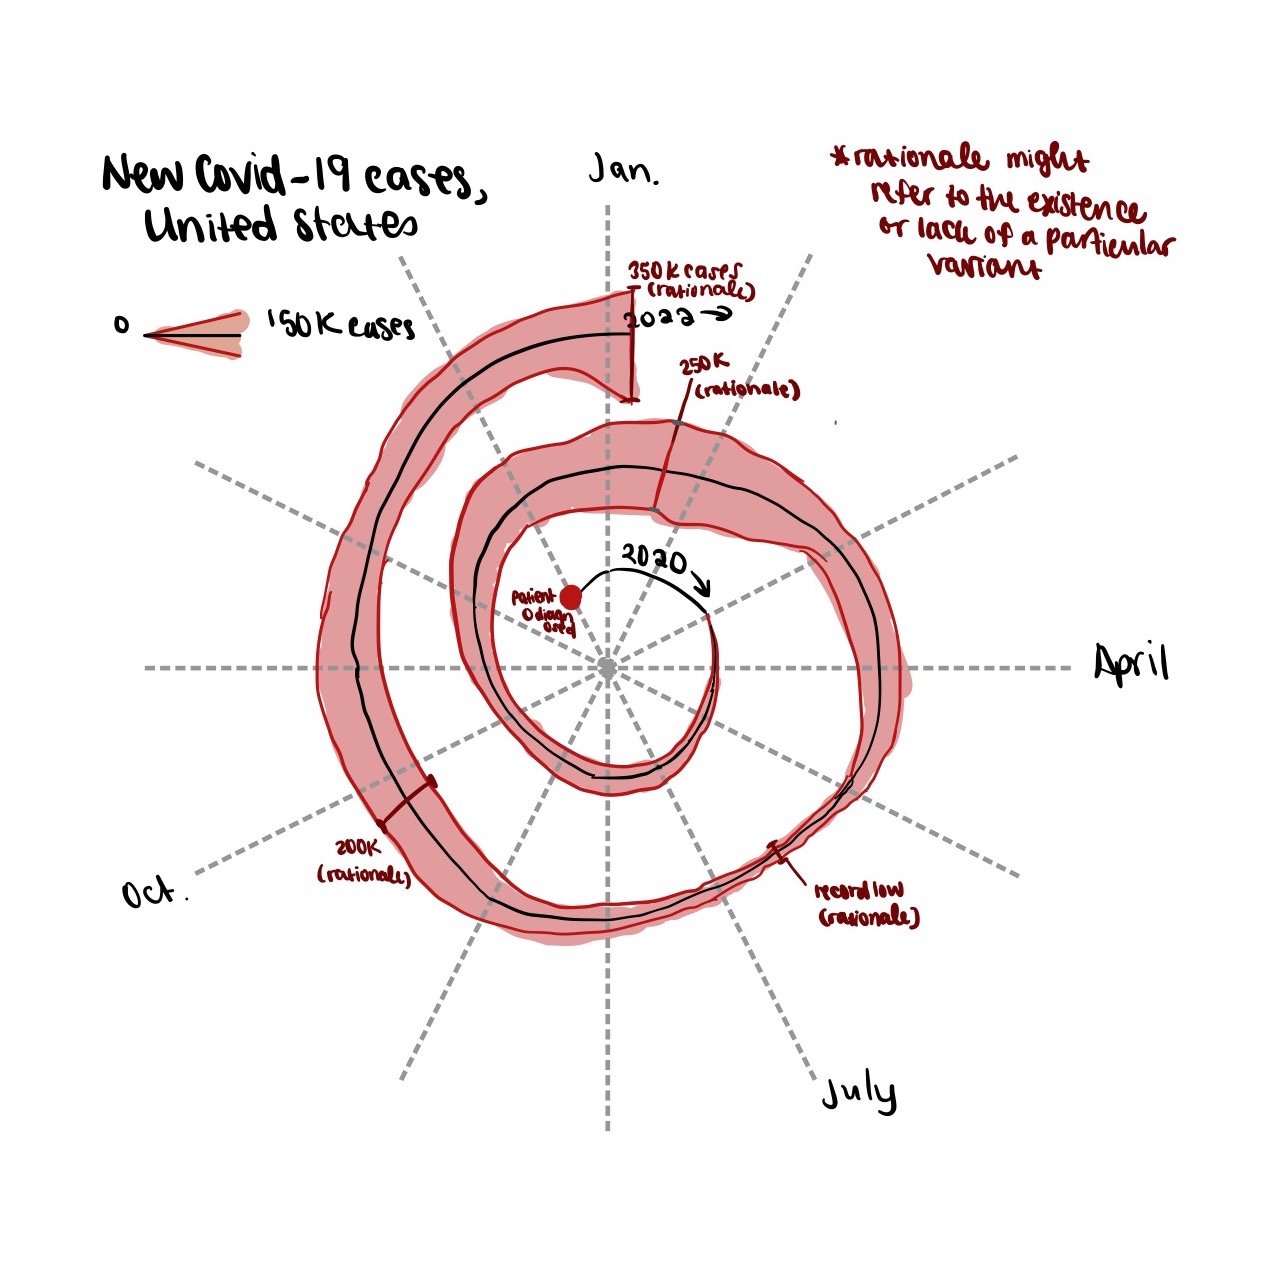 New Covid-19 cases,
United States
0
150K cases
Jan.
*rationale might
refer to the existence
or lack of a particular
variant
350K cases
(rationale)
2022 →
250K
(rationale)
2020
patient
0 diagn
osed
April
200K
(rationale)
Oct.
record low
(rationale)
July